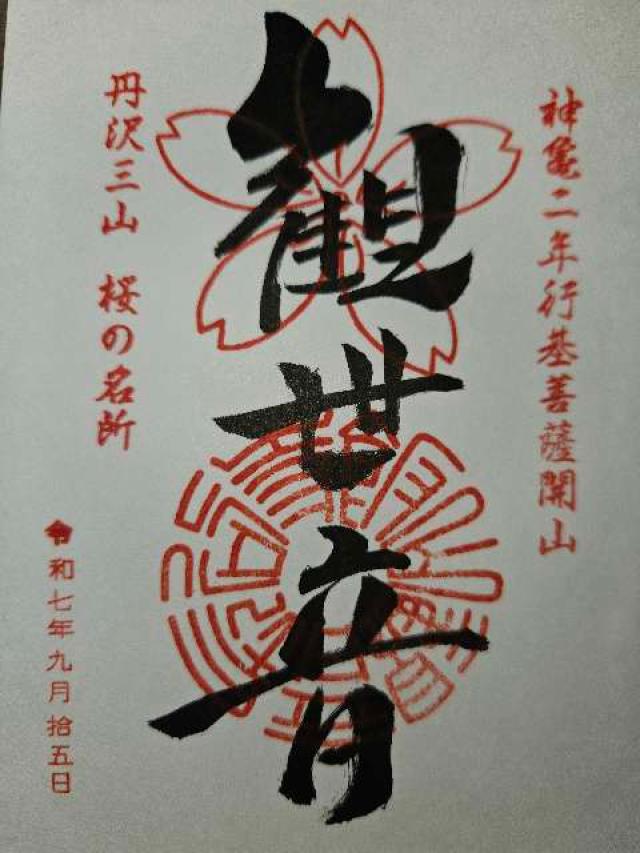 神亀二年行基菩薩開山
観世音
丹沢三山 桜の名所
令和七年九月拾五日